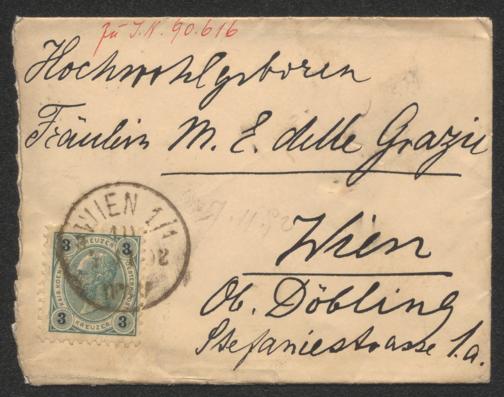 zu I.N. 90.616
Hochwohlgeboren
Fräulein M. E. delle Grazie
Wien
Ob. Döbling
Stefaniestrasse 1.a.
WIEN 1/1
3 3
KREUZER
KREUZER
3 3